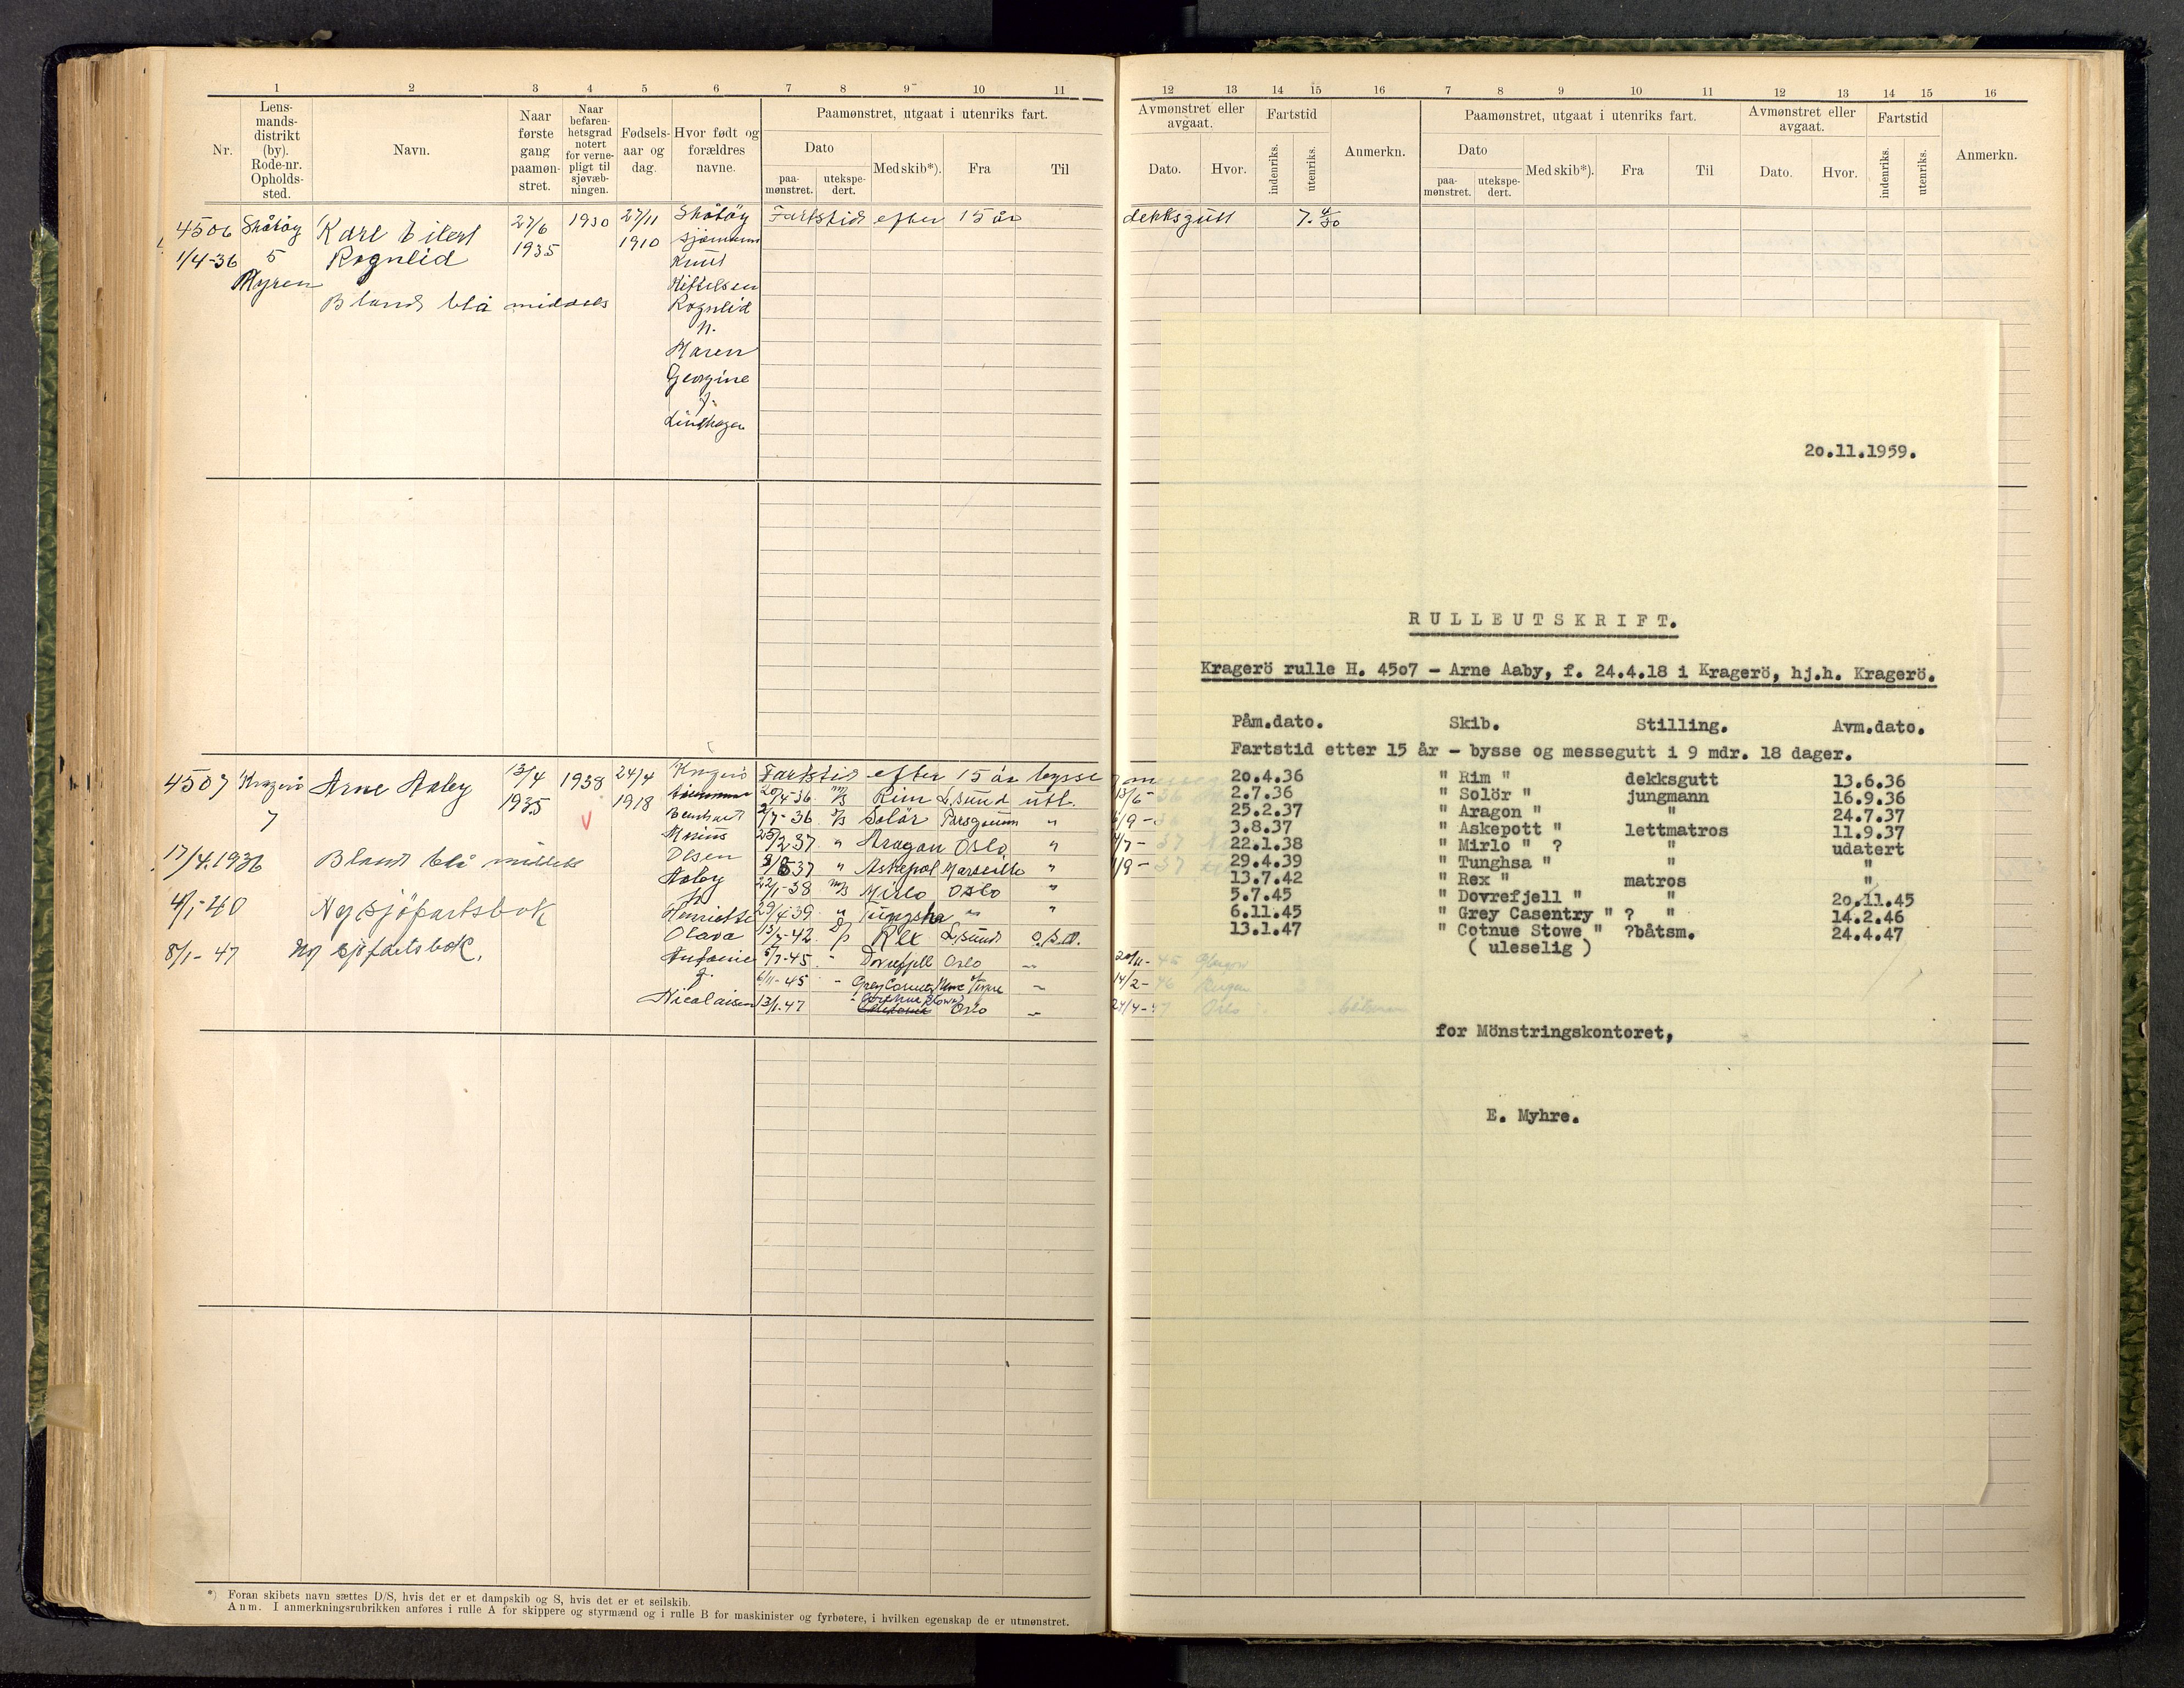 1 2 3 4 5 6 7 8 9 10 11
Nr. Lens-mands-distrikt (by). Rode-nr. Opholds-sted. Navn. Naar første gang paamøn-stret. Naar befaren-hetsgrad notert for verne-pligt til sjøvæb-ningen. Fødsels-aar og dag. Hvor født og forældres navne.
Paamønstret, utgaat i utenriks fart.
Dato paa-mønstret. utekspe-dert. Med skib*). Fra Til
4506 Skåtöy Karl Eilert 27/6 1930 27/11 Skåtöy Fartstid efter 15 år
1/4-36 5 Rognlid 1935 1910 sjömann
Knut
Myren
Kittelsen
Blond blå middels Rognlid
h.
Maren
Georgine
f.
4507 Kragerö Arne Aaby 13/4 1938 24/4 Kragerö Fartstid efter 15 år bysse
7 1935 1918 20/4-36 m/s Rim L.sund utl.
V Bernhart 2/7-36 Solör "
Marius 25/2 37 " Aragon Oslo "
17/4.1936 Blond blå middels Olsen 3/8 37 " Askepot Marseille "
Aaby 22/1-38 m/s Mirlo Oslo "
h
4/1-40 Ny sjöfartsbok Henriette 29/4 39 " Tungsha " "
Olava 13/7-42 Rex L.sund
8/1-47 Ny sjöfartsbok. 5/7-45 " Dovrefjell Oslo "
f. 6/11-45 "
Nicolaisen 13/1.47 Oslo "
*) Foran skibets navn sættes D/S, hvis det er et dampskib og S, hvis det er et seilskib.
Anm. I anmerkningsrubrikken anføres i rulle A for skippere og styrmænd og i rulle B for maskinister og fyrbøtere, i hvilken egenskap de er utmønstret.
12 13 14 15 16 7 8 9 10 11 12 13 14 15 16
Avmønstret eller avgaat. Fartstid Paamønstret, utgaat i utenriks fart. Avmønstret eller avgaat. Fartstid
Dato. Hvor. indenriks. utenriks. Anmerkn. Dato paa-mønstret. utekspe-dert. Med skib*). Fra Til Dato. Hvor. indenriks. utenriks. Anmerkn.
dekksgutt 7.
20.11.1959.
RULLEUTSKRIFT.
Kragerö rulle H. 4507 - Arne Aaby, f. 24.4.18 i Kragerö, hj.h. Kragerö.
Påm.dato. Skib. Stilling. Avm.dato.
Fartstid etter 15 år - bysse og messegutt i 9 mdr. 18 dager.
20.4.36 " Rim " dekksgutt 13.6.36
2.7.36 " Solör " jungmann 16.9.36
25.2.37 " Aragon " " 24.7.37
3.8.37 " Askepott " lettmatros 11.9.37
22.1.38 " Mirlo " ? " udatert
29.4.39 " Tunghsa " " "
13.7.42 " Rex " matros "
5.7.45 " Dovrefjell " " 20.11.45
6.11.45 " Grey Casentry " ? " 14.2.46
13.1.47 " Cotnue Stowe " ?båtsm. 24.4.47
( uleselig )
for Mönstringskontoret,
E. Myhre.